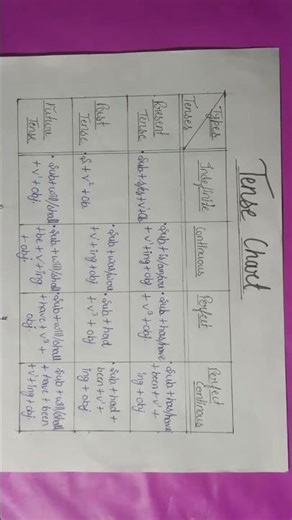 Tense Chart
Types
Tenses
Indefinite
Continuous
Perfect
Perfect
Continous
Present
Tense
• Sub + is/am/are
+ v + ing + obj
• Sub + has/have
+ v³ + obj
• Sub + has/have
+ been + v +
ing + obj
Past
Tense
• S + v² + ob
• Sub + was/were
+ v + ing + obj
• Sub + had
+ v³ + obj
• Sub + had +
been + v +
ing + obj
Future
Tense
• Sub + will/shall
+ v + obj
• Sub + will/shall
+ be + v + ing
+ obj
• Sub + will/shall
+ have + v³ +
obj
• Sub + will/shall
+ have + been
+ v + ing + obj